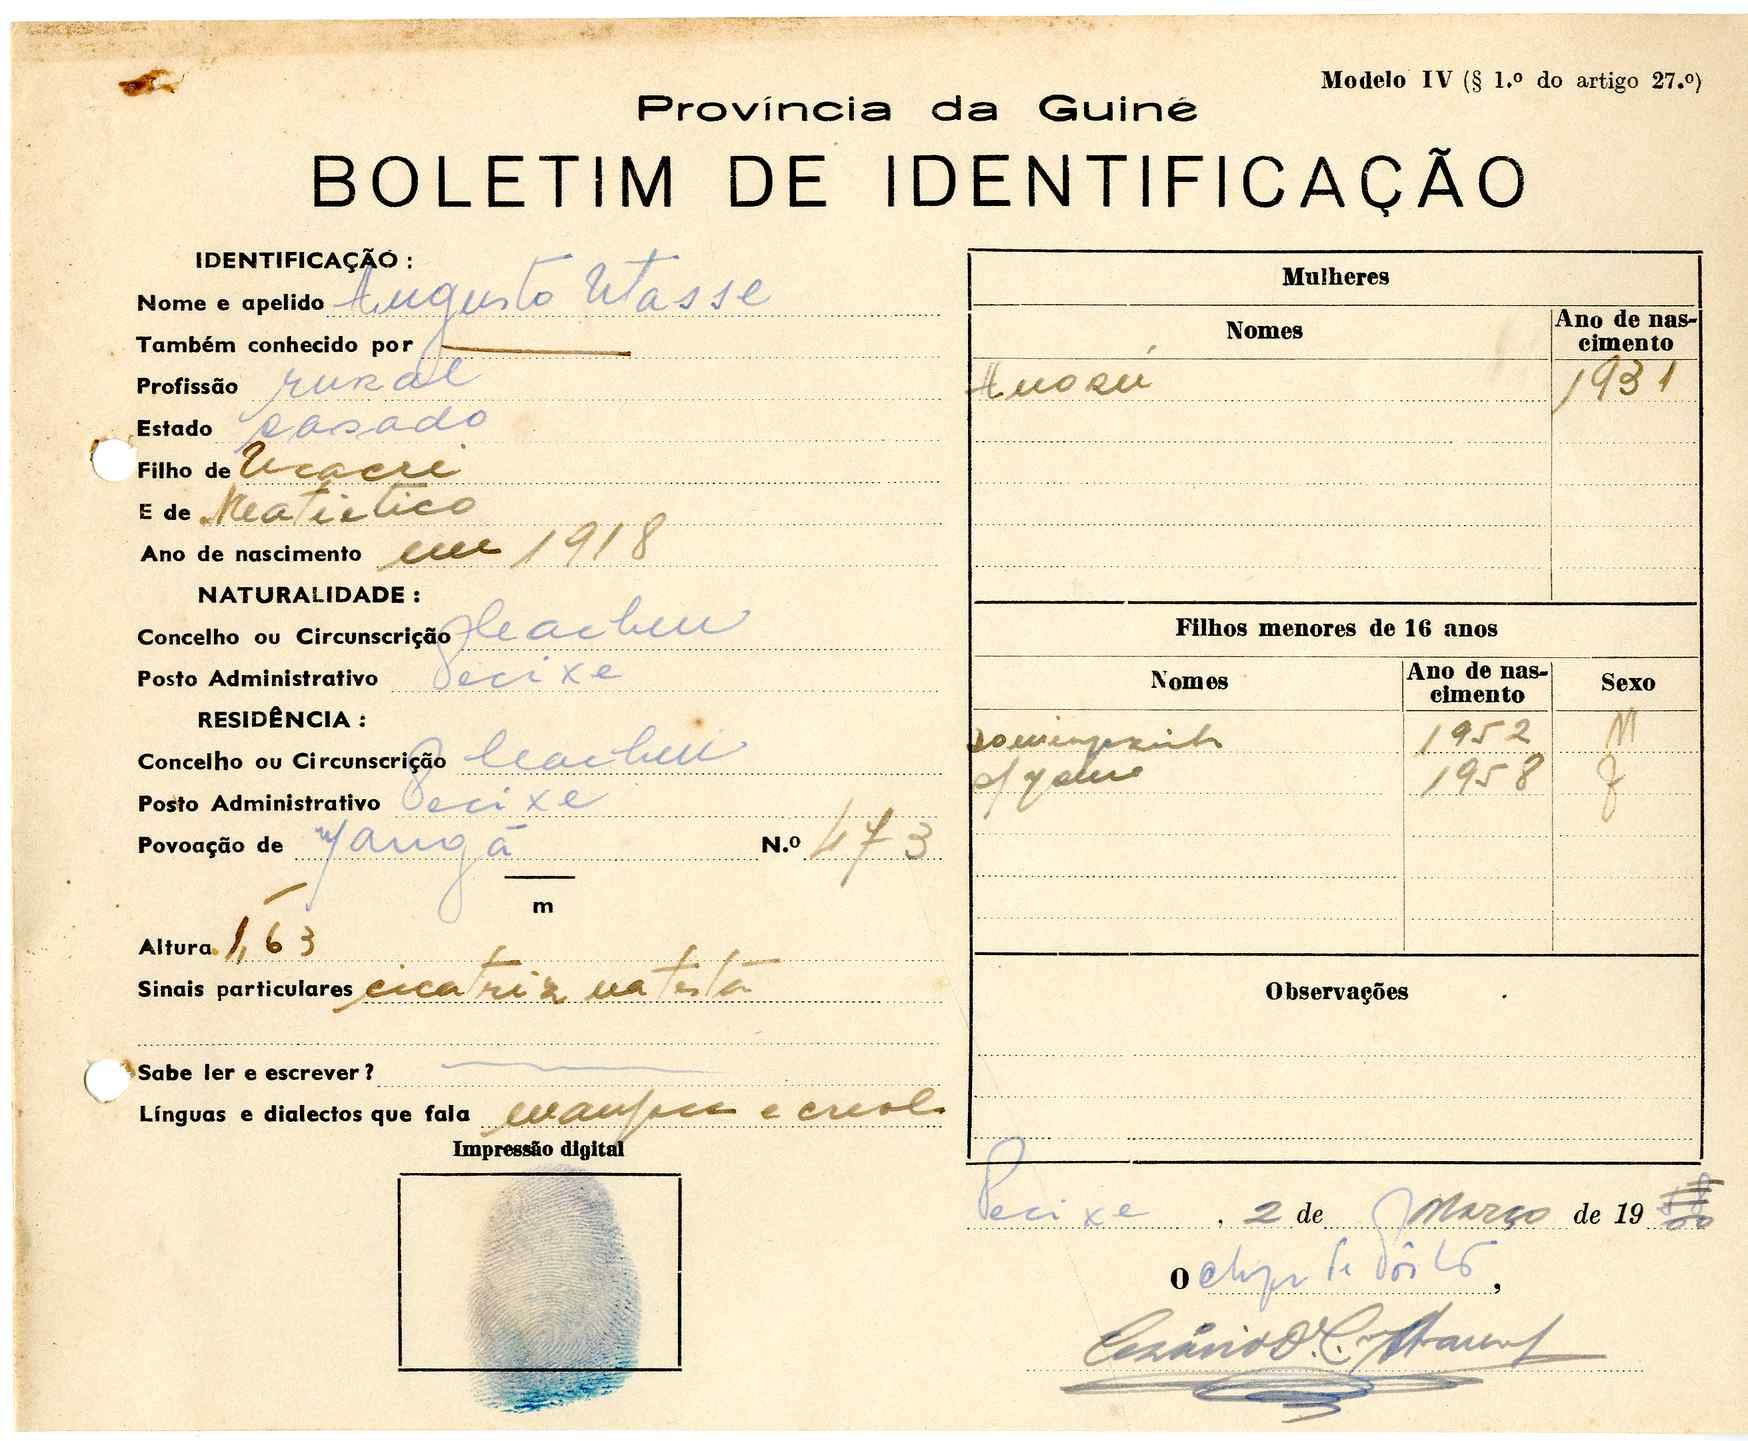 Modelo IV (§ 1.º do artigo 27.º)
Província da Guiné
BOLETIM DE IDENTIFICAÇÃO
IDENTIFICAÇÃO :
Nome e apelido Augusto Utasse
Também conhecido por
Profissão rural
Estado casado
Filho de Ucacri
E de
Ano de nascimento em 1918
NATURALIDADE :
Concelho ou Circunscrição
Posto Administrativo Pecixe
RESIDÊNCIA :
Concelho ou Circunscrição
Posto Administrativo Pecixe
Povoação de N.º 473
m
Altura 1,63
Sinais particulares cicatriz na testa
Sabe ler e escrever ?
Línguas e dialectos que fala e
Impressão digital
Mulheres
Nomes Ano de nas-
cimento
1931
Filhos menores de 16 anos
Nomes Ano de nas-
cimento Sexo
1952 M
1958 F
Observações
Pecixe , 2 de Março de 19
O chefe de Pôsto,